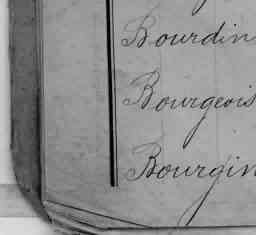 Bourdin
Bourgeois
Bourgin